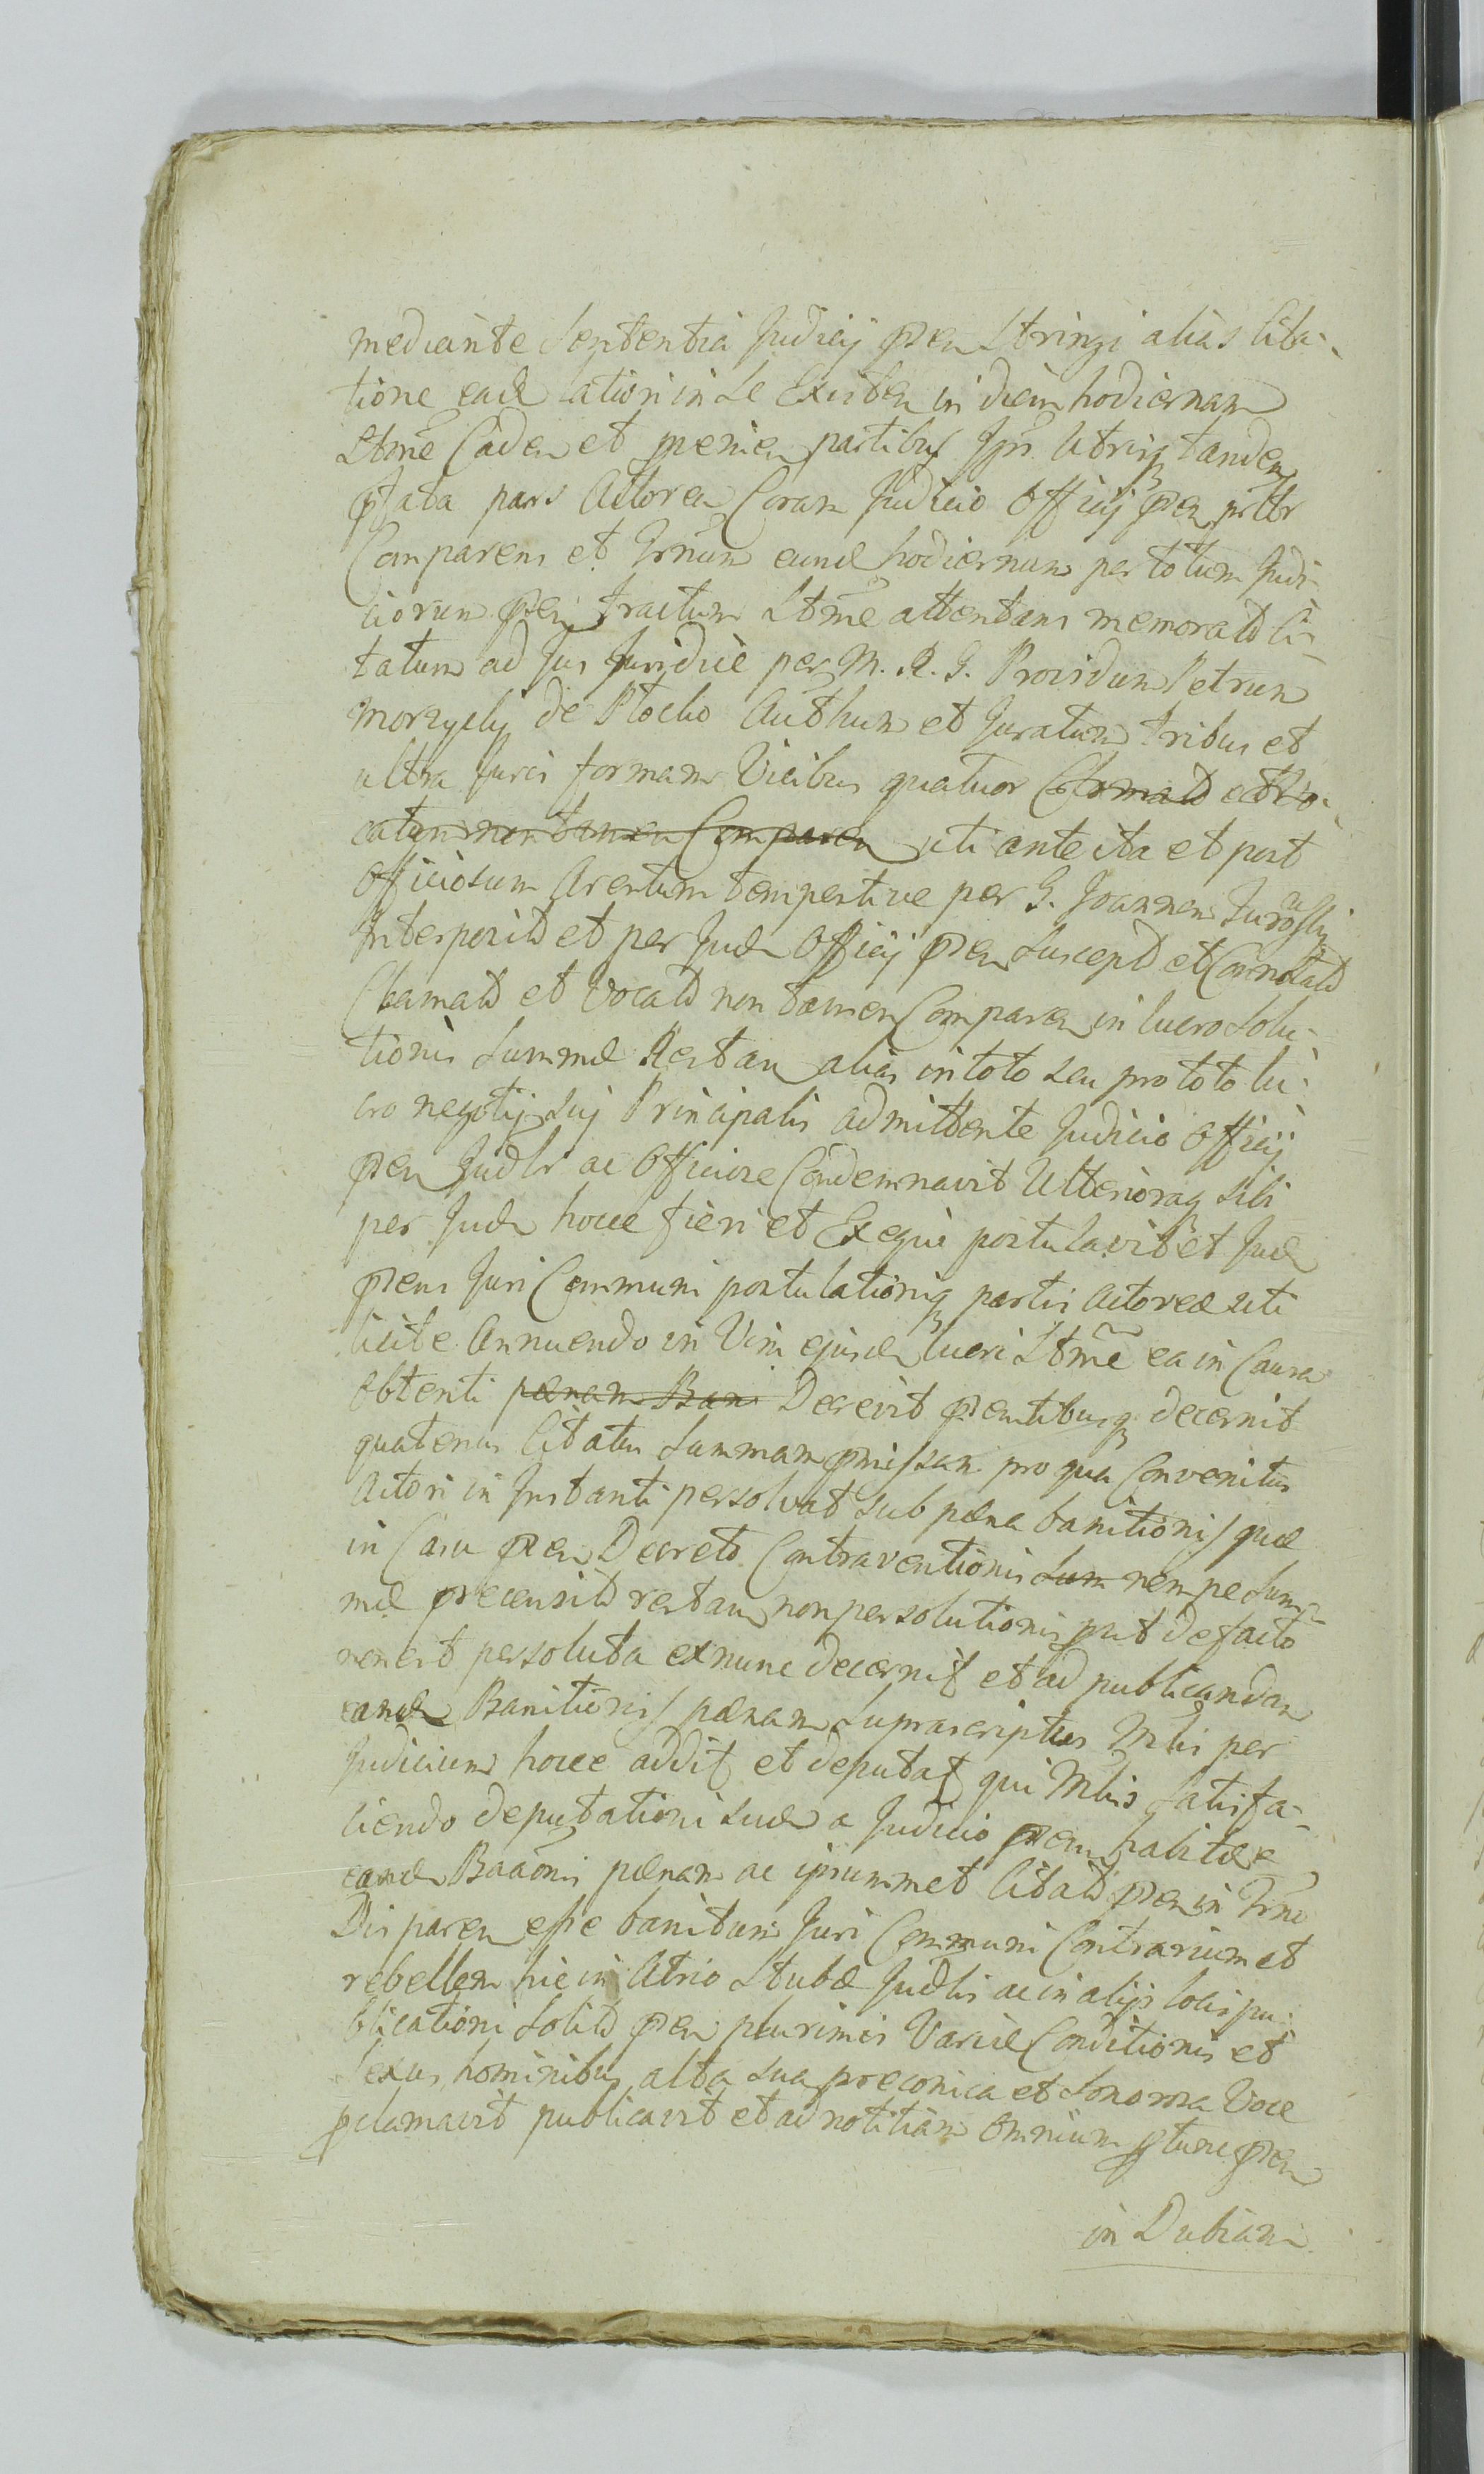 mediante Sententia Judicij pren stringi alias Cita-
tione ead actioni in se Existen in diem hodiernam
Ltme Caden et pvenien partibus Jpis Utrinq tanden
pfata pars Actorea Coram Judicio Officij pren prltr
Comparens et Trnum eund hodiernum per totum Judi-
ciorum pren tractum Ltme attentans memoratt Ci-
tatum ad Jus Juridice per M. R. G. Providum Petrum
Morzycky de Plocko Authum et Juratum tribus et
ultra Juris formam Vicibus quatuor
uti ante ita et post
Officiosum Arestum tempestive per G. Joannem
Interposit et per Jud Officij pren Suscept et Connotatt
Clamatt et Vocatt non tamen Comparen in lucro Solu-
tionis Summæ Restan alias in toto seu pro toto lu-
cro negotij sui Principalis admittente Judicio Officij
pren Judlr ac Officiose Condemnavit Ulterioraq sibi
per Jud hocce fieri et Exequi postulavit et Jud
prens Juri Communi postulationiq partis Actoreæ uti
licite Annuendo in Vim ejusd lucri Ltme ea in Causa
Obtenti pænam Ban Decrevit prentibusq decernit
quatenus Citatus Summam pmissam pro qua Convenitur
Actori in Instanti persolvat sub pæna banitionis quæ
in Casu pren Decreto Contraventionis Sum nempe Sum-
mæ precensit restan non persolutionis prt de facto
non est persoluta ex nunc decernit et ad publicandam
eand Banitionis pænam Suprascriptus Mlis per
Judicium hocce addit et deputat qui Mlis Satisfa-
ciendo deputationi suæ a Judicio pren habitæ
eand Baaonis pænam ac ipsummet Citatt pren in Trno
Disparen esse banitum Juri Communi Contrarium et
rebellem hic in Atrio Stubæ Judlis ac in alijs locis pu-
blicationi Solitt pren plurimis Variæ Conditionis et
Sexus hominibus alta sua præconica et Sonorosa Voce
pclamavit publicavit et ad notitiam omnium ptunc pren
in Dubiam